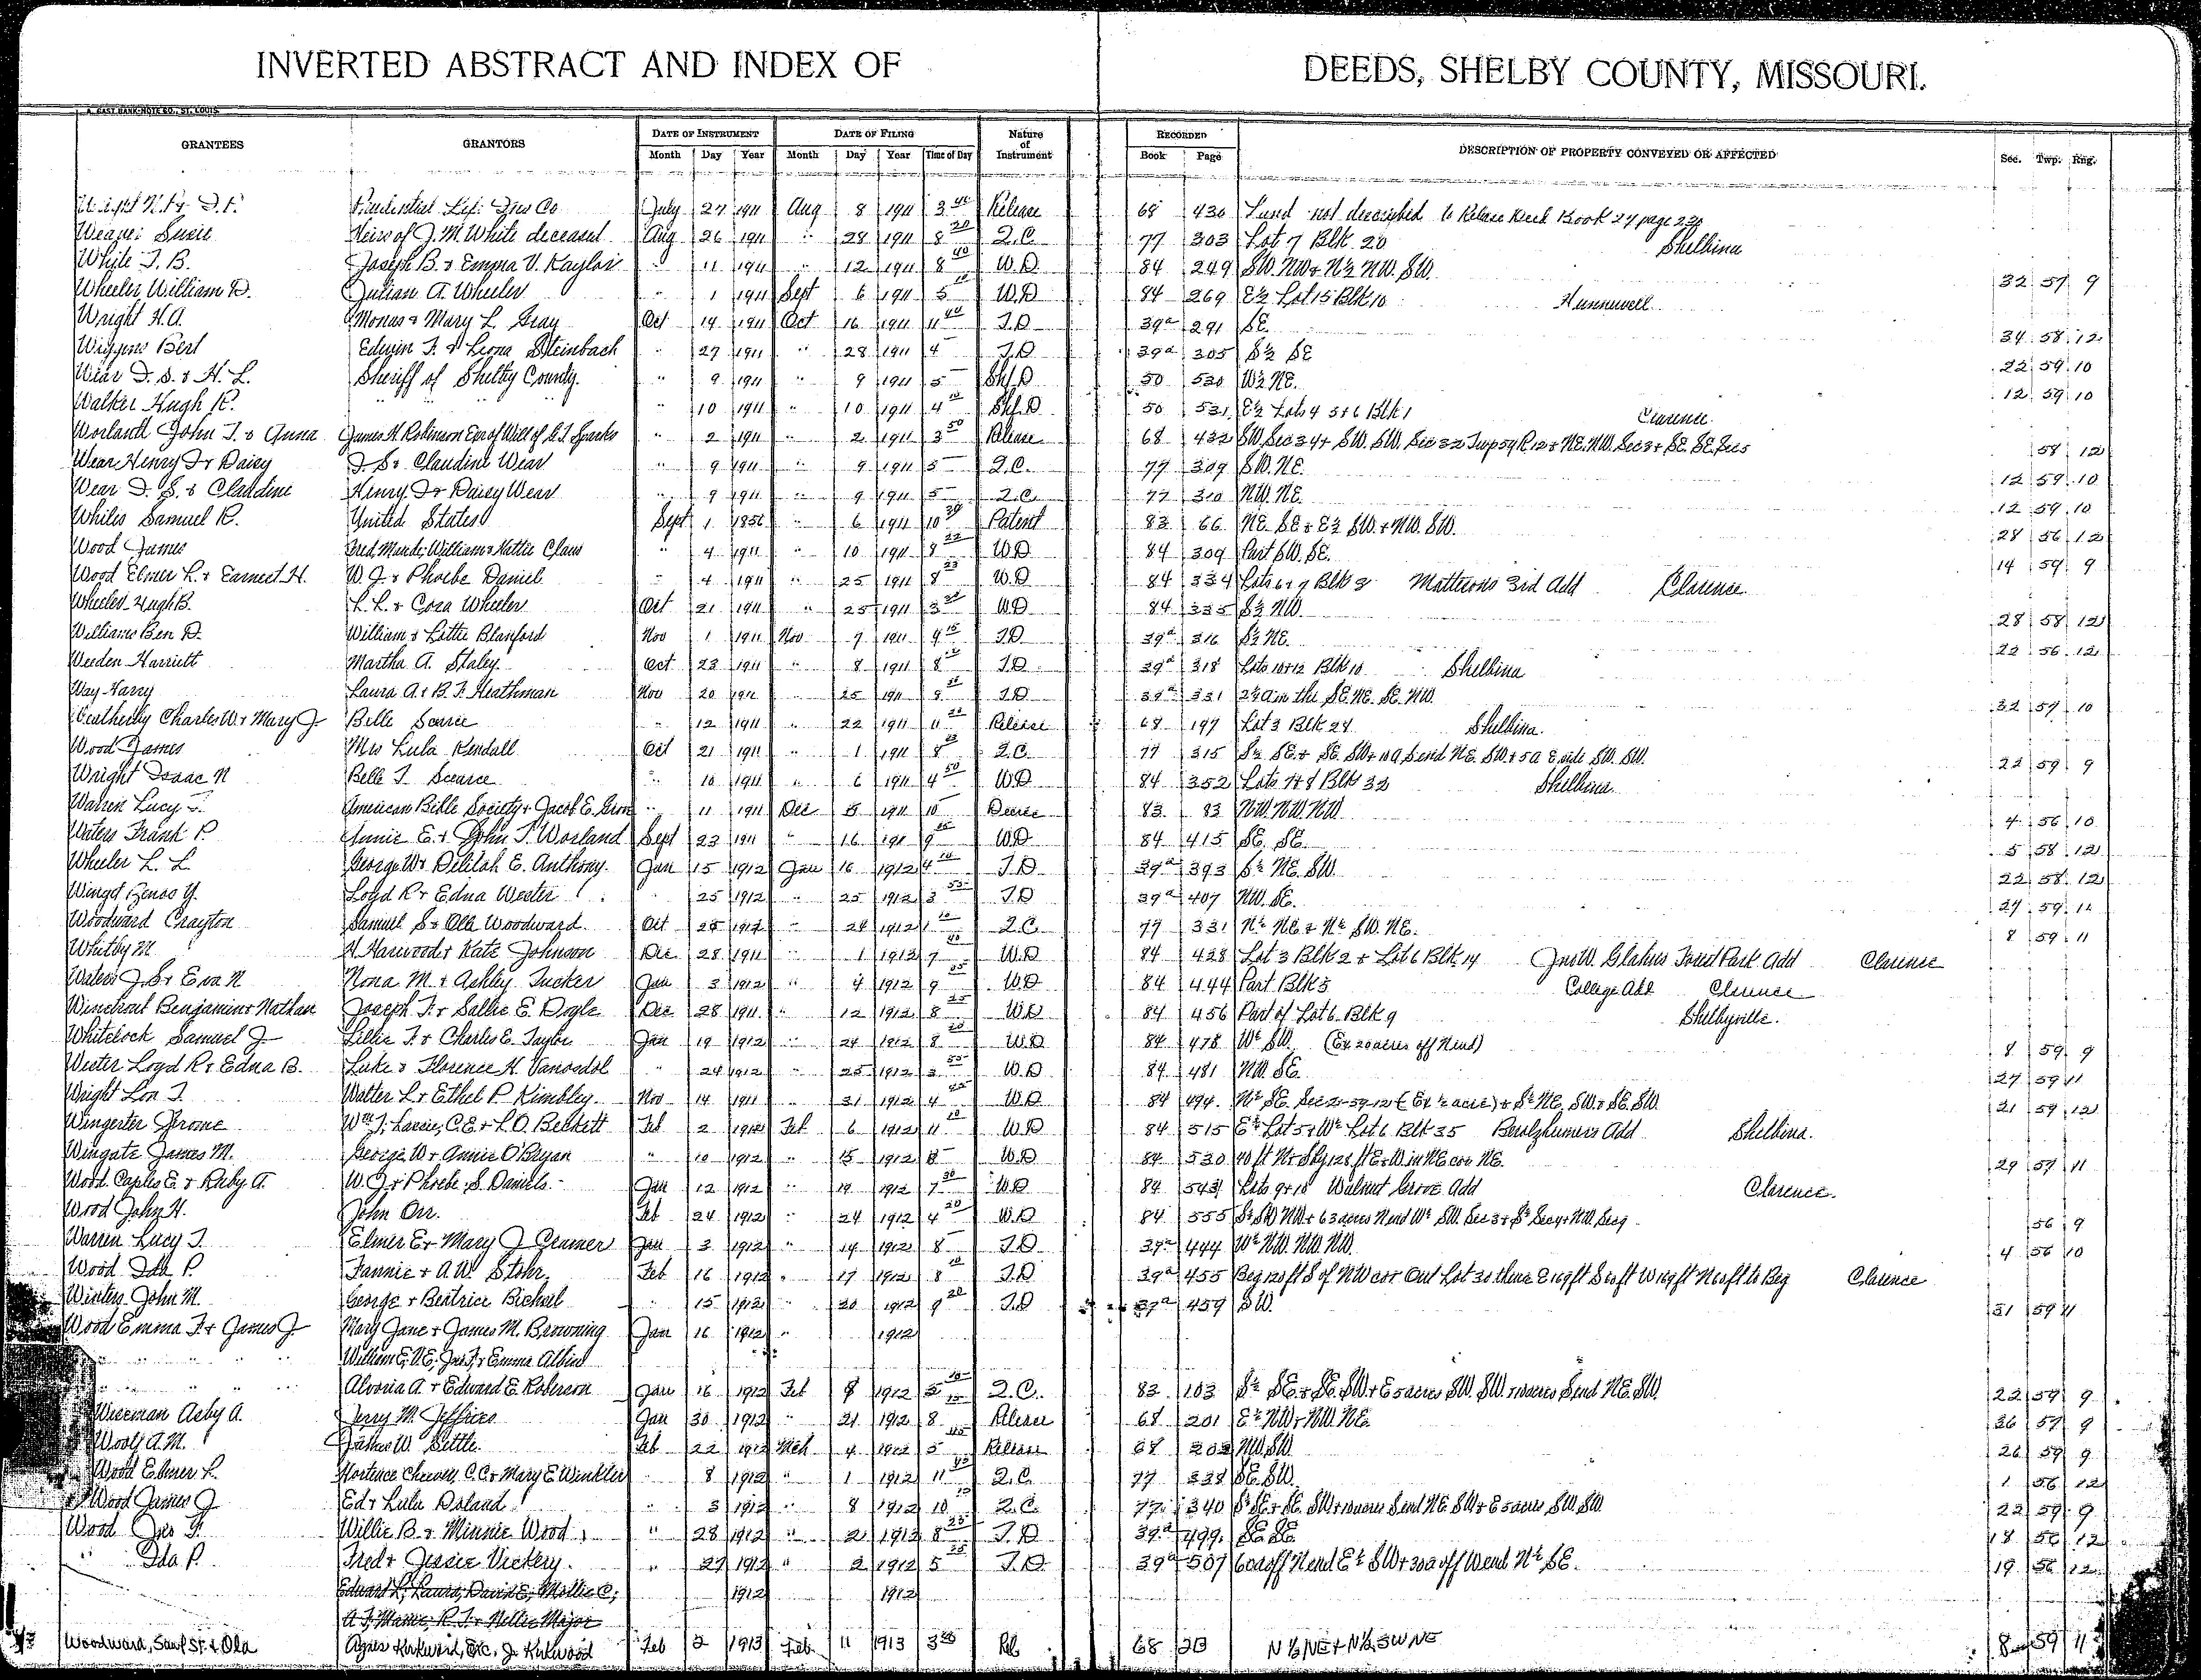 INVERTED ABSTRACT AND INDEX OF DEEDS, SHELBY COUNTY, MISSOURI.
A. GAST BANK-NOTE CO., ST. LOUIS
GRANTEES GRANTORS DATE OF INSTRUMENT DATE OF FILING Nature of Instrument RECORDED DESCRIPTION OF PROPERTY CONVEYED OR AFFECTED Sec. Twp. Rng.
Month Day Year Month Day Year Time of Day Book Page
Prudential Life Ins Co July 27 1911 Aug 8 1911 3 Release 68 430 Land not described to Release Book 24 page
Weaver Susie Heirs of J. M. White deceased Aug 26 1911 " 28 1911 8 20 Q.C. 77 303 Lot 7 Blk 20 Shelbina
White J. B. Joseph B. & Emma V. Kaylor " 11 1911 " 12 1911 8 40 W.D. 84 249 SW. NW & N½ NW. SW. 32 57 9
Wheeler William D. Julian A. Wheeler " 1 1911 Sept 6 1911 5 W.D. 84 269 E½ Lot 15 Blk 10 Hunnewell
Wright H. A. Monas & Mary L. Gray Oct 14 1911 Oct 16 1911 11 40 T.D. 39a 291 SE. 34 58 12
Wiggins Bert Edwin F. & Leona Steinbach " 27 1911 " 28 1911 4 T.D. 39a 305 S½ SE 22 59 10
Wear D. S. & H. L. Sheriff of Shelby County. " 9 1911 " 9 1911 5 Shf.D 50 530 W½ NE. 12 59 10
Walker Hugh R. " 10 1911 " 10 1911 4 Shf.D 50 531 E½ Lots 4 5 & 6 Blk 1 Clarence
Worland John T. & Anna James H. Robinson Exr of Will of Sparks " 2 1911 " 2 1911 3 50 Release 68 432 SW Sec 34 & SW. SW. Sec 32 Twp 59 R 12 & NE. NW. Sec 3 & SE. SE. Sec 5 58 12
Wear Henry & Daisy D. S. & Claudine Wear " 9 1911 " 9 1911 5 Q.C. 77 309 SW. NE. 12 59 10
Wear D. S. & Claudine Henry & Daisy Wear " 9 1911 " 9 1911 5 Q.C. 77 310 NW. NE. 12 59 10
Whiles Samuel R. United States Sept 1 1856 " 6 1911 10 Patent 83 66 NE. SE & E½ SW. & NW. SW. 28 56 12
Wood James Fred, Maude, William & Hattie Claus " 4 1911 " 10 1911 8 W.D. 84 309 Part SW. SE. 14 59 9
Wood Elmer L. & Earnest H. W. J. & Phoebe Daniel " 4 1911 " 25 1911 8 W.D. 84 334 Lots 6 & 7 Blk 3 3rd Add Clarence.
Wheeler Hugh B. L. L. & Cora Wheeler Oct 21 1911 " 25 1911 3 W.D. 84 335 S½ NW. 28 58 12
Williams Ben D. William & Lottie Blanford Nov 1 1911 Nov 9 1911 9 15 T.D. 39a 316 S½ NE. 22 56 12
Weeden Harriett Martha A. Staley Oct 23 1911 " 8 1911 8 T.D. 39a 318 Lots 10 & 12 Blk 10 Shelbina
Way Harry Laura A. & B. F. Heathman Nov 20 1911 " 25 1911 T.D. 39a 331 in the SE. NE. SE. NW. 32 57 10
Weatherby Charles W. & Mary J. Belle Searce " 12 1911 " 22 1911 11 Release 68 197 Lot 3 Blk 24 Shelbina.
Wood James Mrs Lula Kendall Oct 21 1911 " 1 1911 8 Q.C. 77 315 S½ SE & SE. SW & 10 A S end NE. SW. & 5 A E side SW. SW. 22 59 9
Wright Isaac N Belle T. Scearce " 10 1911 " 6 1911 4 50 W.D. 84 352 Lots 7 & 8 Blk 32 Shelbina.
Warren Lucy T. American Bible Society & Jacob E. " 11 1911 Dec 1911 10 Decree 83 83 NW. NW. NW. 4 56 10
Waters Frank P. Annie E. & John T. Worland Sept 23 1911 " 16 1911 9 W.D. 84 415 SE. SE. 5 58 12
Wheeler L. L. George W. & Delilah E. Anthony. Jan 15 1912 Jan 16 1912 4 T.D. 39a 393 S½ NE. SW. 22 58 12
Loyd R. & Edna Wester " 25 1912 " 25 1912 3 55 T.D. 39a 407 NW. SE. 27 59 11
Woodward Crayton Samuel S. & Ola Woodward. Oct 25 " 24 1912 1 Q.C. 77 331 N½ NE & N½ SW. NE. 8 59 11
Whitby M. H. Harwood & Kate Johnson Dec 28 1911 " 1 1912 9 W.D. 84 428 Lot 3 Blk 2 & Lot 6 Blk 14 Jno W. Park Add Clarence
Waters J. S. & Eva N Nona M. & Ashley Tucker Jan 3 1912 " 4 1912 9 W.D. 84 444 Part Blk 5 College Add Clarence
Winebront Benjamin & Nathan Joseph F. & Sallie E. Dogle Dec 28 1911 " 12 1912 8 W.D. 84 456 Part of Lot 6. Blk 9 Shelbyville.
Whitelock Samuel J Lillie F. & Charles E. Taylor Jan 19 1912 " 24 1912 8 W.D. 84 478 W½ SW. (Ex 20 acres off N end) 8 59 9
Wester Loyd R. & Edna B. Luke & Florence H. Vanosdol " 24 1912 " 25 1912 3 55 W.D. 84 481 NW. SE. 27 59 11
Wright Lon T. Walter L. & Ethel P. Kimbley Nov 14 1911 " 31 1912 4 W.D. 84 494 N½ SE. Sec 21-59-12 (Ex ½ acre) & S½ NE. SW. & SE. SW. 21 59 12
Wingerter Jerome Wm T. Lassie, C. E. & L. O. Beckett Feb 2 1912 Feb 6 1912 11 W.D. 84 515 E½ Lot 5 & W½ Lot 6 Blk 35 Add Shelbina.
Wingate James M. George W. & Annie O'Bryan " 10 1912 " 15 1912 8 W.D. 84 530 40 ft N & S by 128 ft E & W in NE cor NE. 29 57 11
Wood Caples E. & Ruby A. W. J. & Phoebe S. Daniels Jan 12 1912 " 19 1912 7 W.D. 84 543 Lots 9 & 10 Walnut Grove Add Clarence.
Wood John H. John Orr. Feb 24 1912 " 24 1912 4 20 W.D. 84 555 S½ SW NW & 63 acres N end W½ SW. Sec 3 & S½ Sec 4 & NW. Sec 9 56 9
Warren Lucy T. Elmer E. & Mary J. Cramer Jan 3 1912 " 14 1912 8 T.D. 39a 444 W½ NW. NW. NW. 4 56 10
Wood Ida P. Fannie & A. W. Stohr Feb 16 1912 " 17 1912 8 T.D. 39a 455 Beg 120 ft S of NW cor Out Lot 30 thence Clarence
Winters John M. George & Beatrice Bichsel " 15 1912 " 20 1912 9 T.D. 39a 459 SW. 31 59 11
Wood Emma F. & James J Mary Jane & James M. Browning Jan 16 1912 " 1912
" " " " William E. V. E. Jas F. & Emma Albin
" " " " Alvoria A. & Edward E. Roberson Jan 16 1912 Feb 8 1912 5 Q.C. 83 103 S½ SE. & SE. SW. & E 5 acres SW. SW. & 10 acres S end NE. SW. 22 59 9
Wiseman Arby A. Jerry M. Jeffries Jan 30 1912 " 21 1912 8 Release 68 201 E½ NW. & NW. NE. 36 57 9
Woolf A. M. James W. Settle. Feb 22 1912 Mch 4 1912 5 Release 68 202 NW. SW. 26 59 9
Wood Elmer L. Hortence Cheever, C. C. & Mary E Winkler " 8 1912 " 1 1912 11 Q.C. 77 338 SE. SW. 1 56 12
Wood James J Ed & Lula Doland " 3 1912 " 8 1912 10 Q.C. 77 340 S½ SE & SE. SW & 10 acres S end NE SW & E 5 acres SW. SW. 22 59 9
Wood Jas F. Willie B. & Minnie Wood " 28 1912 " 2 1912 8 T.D. 39a 499 SE. SE. 18 56 12
" Ida P. Fred & Jessie Vickery. " 27 1912 " 2 1912 5 T.D. 39a 507 60 a off N end E½ SW & 30 a off W end N½ SE. 19 56 12
Edward L, Laura, David E, Mollie C, 1912 1912
A. F, Mamie, R. T. & Nellie Major
Woodward, Saml S. & Ola Agnes Kirkwood, Exc. J. Kirkwood Feb 2 1913 Feb. 11 1913 3 Rel. 68 213 N ½ NE & N ½ SW NE 8 59 11